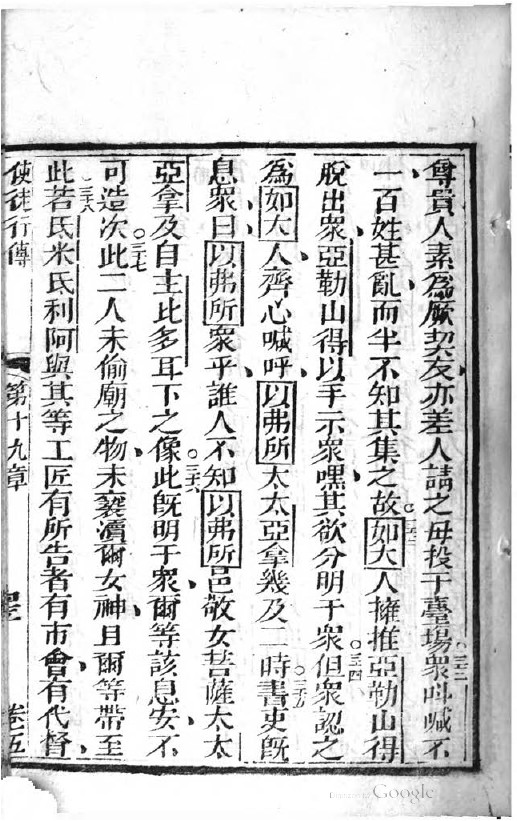 尊貴人素為厥契友亦差人請之毋投于臺場衆呌喊不
三二
一百姓甚亂而半不知其集之故如大人擁推亞勒山得
三三
脫出衆亞勒山得以手示衆嘿其欲分明于衆但衆認之
三四
為如大人齊心喊呼以弗所太太亞拿幾及二時書史旣
三五
息衆曰以弗所衆乎誰人不知以弗所邑敬女菩薩太太
亞拿及自主此多耳下之像此旣明于衆爾等該息安不
三六
可造次此二人未偷廟之物未褻瀆爾女神且爾等帶至
三七
此若氐米氐利阿與其等工匠有所告者有市會有代督
三八
使徒行傳 第十九章 卷五
Google